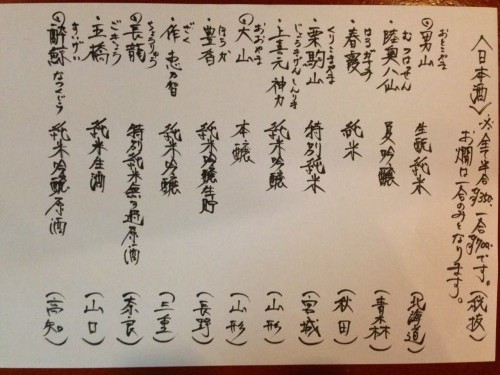 〈日本酒〉※全て半合¥350、一合¥700です。(税抜)
お燗は一合のみとなります。
男山 おとこやま 生酛純米 (北海道)
・陸奥八仙 むつはっせん 夏吟醸 (青森)
・春霞 はるがすみ 純米 (秋田)
・栗駒山 くりこまやま 特別純米 (宮城)
・上喜元 神力 じょうきげんしんりき 純米吟醸 (山形)
大山 おおやま 本醸 (山形)
・豊香 ほうか 純米吟醸生貯 (長野)
・作 恵乃智 ざく 純米吟醸 (三重)
長龍 ちょうりょう 特別純米無ろ過原酒 (奈良)
・五橋 ごきょう 純米生酒 (山口)
酔鯨 すいげい なつくじら 純米吟醸原酒 (高知)